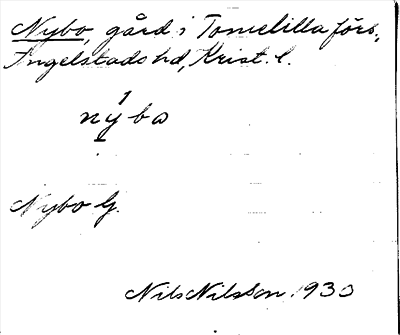 Nybo, gård i Tomelilla förs.,
Ingelstads hd, Krist. l.
nybo
Nybo G.
Nils Nilsson 1930